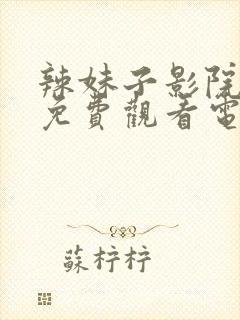 辣妹子影院
免費觀看電
蘇柠柠